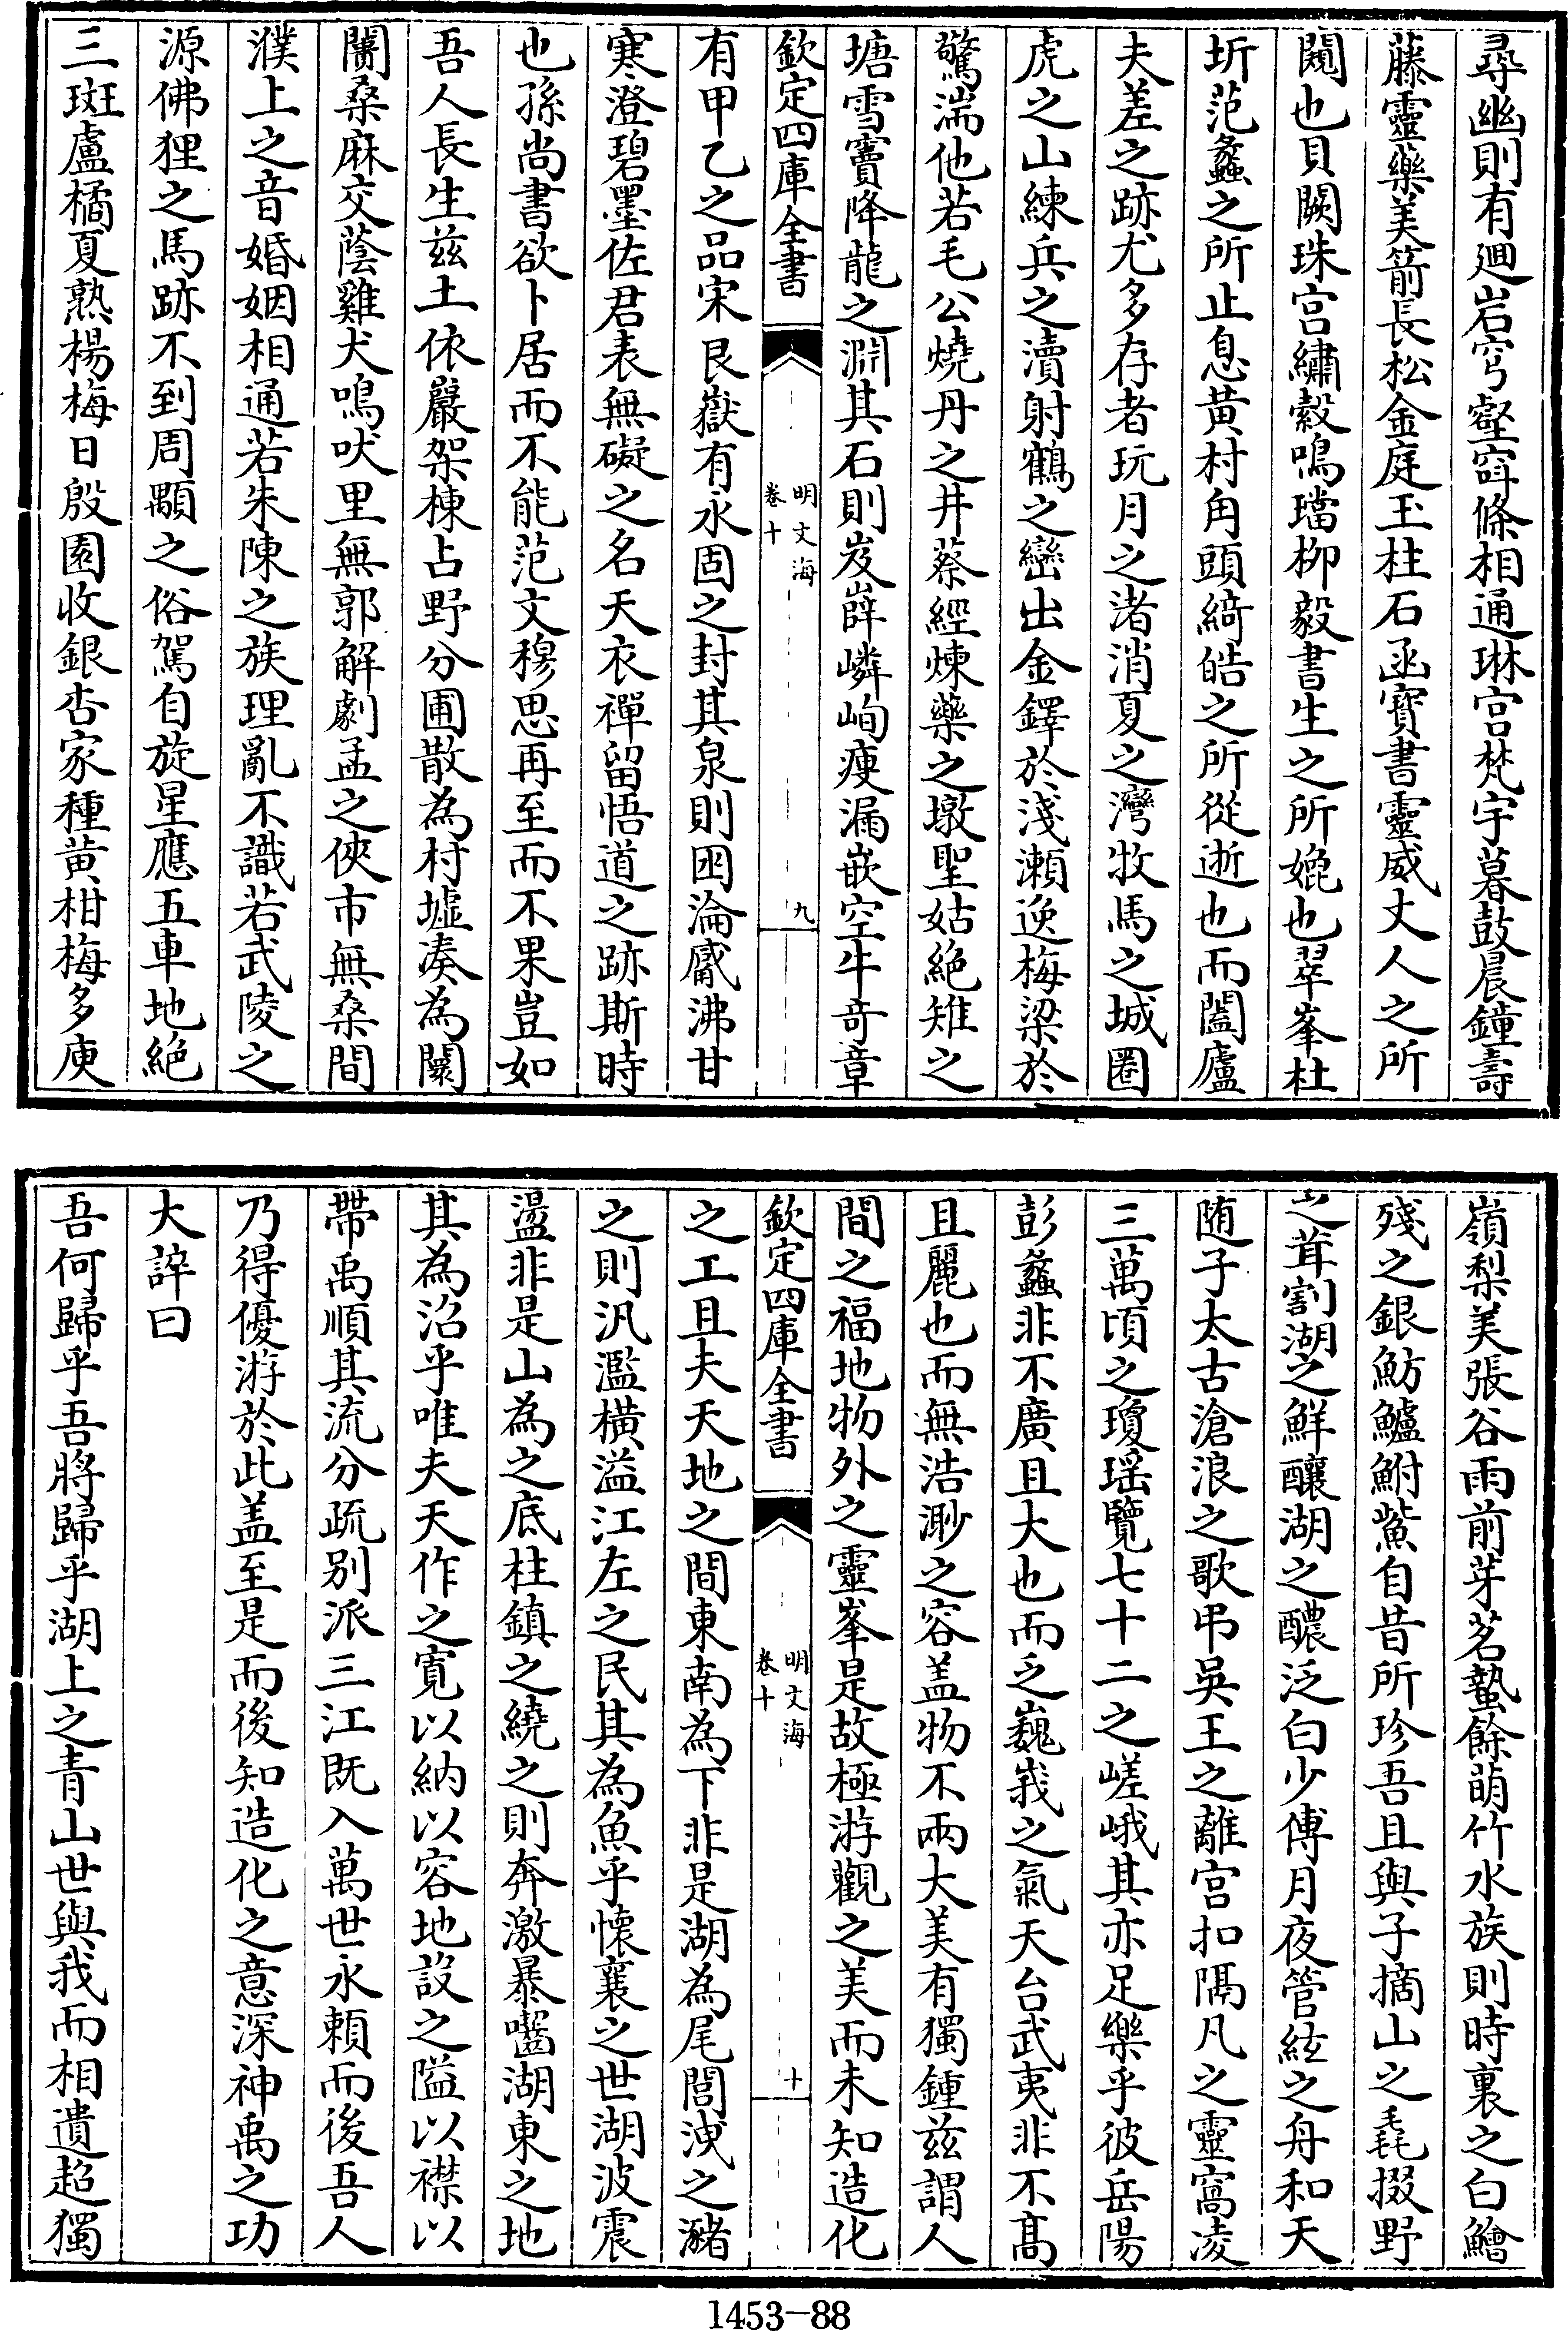 尋幽則有廻岩穹壑窅篠相通琳宮梵宇暮鼓晨鐘壽
藤靈藥美箭長松金庭玉柱石函寶書靈威丈人之所
閱也貝闕珠宮繡縠鳴璫柳毅書生之所媲也翠峯杜
圻范蠡之所止息黄村角頭綺皓之所從逝也而闔廬
夫差之跡尤多存者玩月之渚消夏之灣牧馬之城圈
虎之山練兵之瀆射鶴之巒出金鐸於淺瀨逸梅梁於
驚湍他若毛公燒丹之井蔡經煉藥之墩聖姑絶雉之
塘雪竇降龍之淵其石則岌嶭嶙峋瘦漏嵌空牛奇章
欽定四庫全書
明文海
卷十
九
有甲乙之品宋艮嶽有永固之封其泉則困淪觱沸甘
寒澄碧墨佐君表無礙之名天衣禪留悟道之跡斯時
也孫尚書欲卜居而不能范文穆思再至而不果豈如
吾人長生兹土依巖架棟占野分圃散為村墟湊為闤
闠桑麻交蔭雞犬鳴吠里無郭解劇孟之俠市無桑間
濮上之音婚姻相通若朱陳之族理亂不識若武陵之
源佛狸之馬跡不到周顒之俗駕自旋星應五車地絶
三斑盧橘夏熟楊梅日殷園收銀杏家種黄柑梅多庾
嶺梨美張谷雨前芽茗蟄餘萌竹水族則時裏之白鱠
殘之銀魴鱸鮒鮆自昔所珍吾且與子摘山之毳掇野
之茸割湖之鮮釀湖之醲泛白少傅月夜管絃之舟和天
随子太古滄浪之歌弔吳王之離宮扣隔凡之靈窩凌
三萬頃之瓊瑶覽七十二之嵯峨其亦足樂乎彼岳陽
彭蠡非不廣且大也而乏巍峩之氣天台武夷非不髙
且麗也而無浩渺之容盖物不兩大美有獨鍾兹謂人
間之福地物外之靈峯是故極游觀之美而未知造化
欽定四庫全書
明文海
卷十
十
之工且夫天地之間東南為下非是湖為尾閭洩之瀦
之則汎濫横溢江左之民其為魚乎懷襄之世湖波震
盪非是山為之底柱鎮之繞之則奔激暴囓湖東之地
其為沼乎唯夫天作之寛以納以容地設之隘以襟以
帶禹順其流分疏别派三江既入萬世永賴而後吾人
乃得優游於此盖至是而後知造化之意深神禹之功
大誶曰
吾何歸乎吾將歸乎湖上之青山世與我而相遺超獨
1453-88